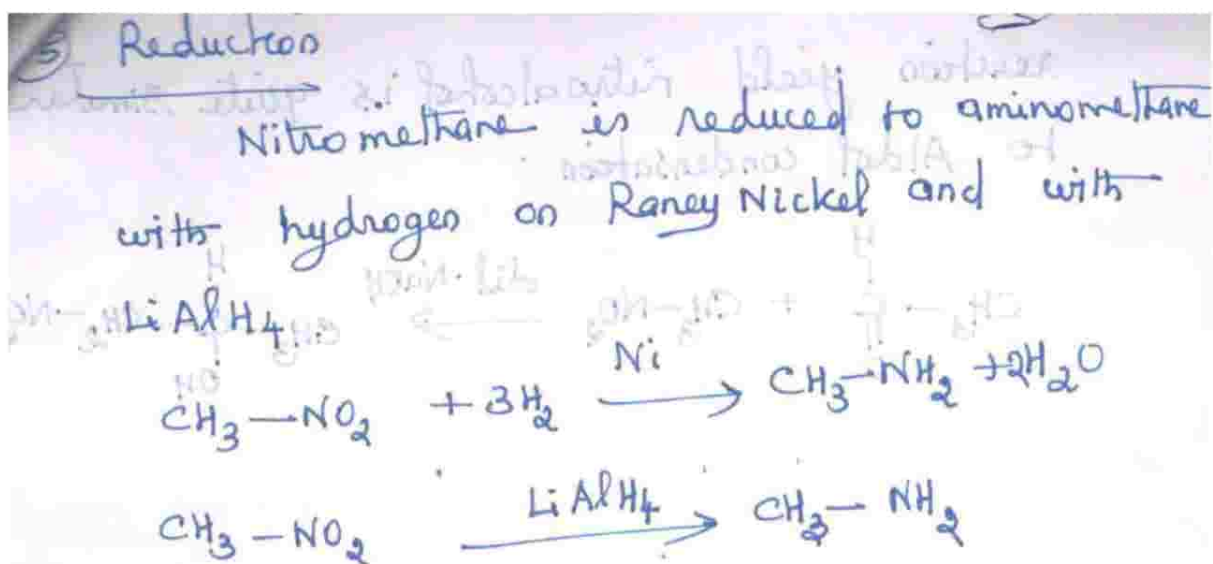 5 Reduction
Nitromethane is reduced to aminomethane
with hydrogen on Raney Nickel and with
LiAlH4.
CH3—NO2 + 3H2 Ni → CH3—NH2 + 2H2O
CH3—NO2 LiAlH4 → CH3—NH2